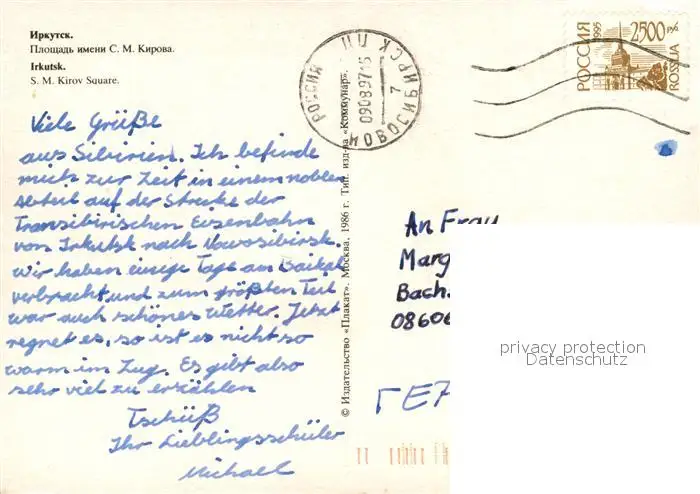 Иркутск.
Площадь имени С. М. Кирова.
Irkutsk.
S. M. Kirov Square.
РОССИЯ НОВОСИБИРСК ПП
090897-15
7
РОССИЯ 1995 2500 РУБ
ROSSIJA
Viele Grüße
aus Sibirien. Ich befinde
mich zur Zeit in einem noblen
Abteil auf der Strecke der
Transibirischen Eisenbahn
von Irkutsk nach Nowosibirsk.
Wir haben einige Tage am Baikal
verbracht und zum größten Teil
war auch schönes Wetter. Jetzt
regnet es, so ist es nicht so
warm im Zug. Es gibt also
sehr viel zu erzählen
Tschüß
Ihr Lieblingsschüler
Michael
© Издательство «Плакат». Москва, 1986 г. Тип. изд-ва «Коммунар».
An Frau
Marg
Bach.
08606
ГЕР
privacy protection
Datenschutz